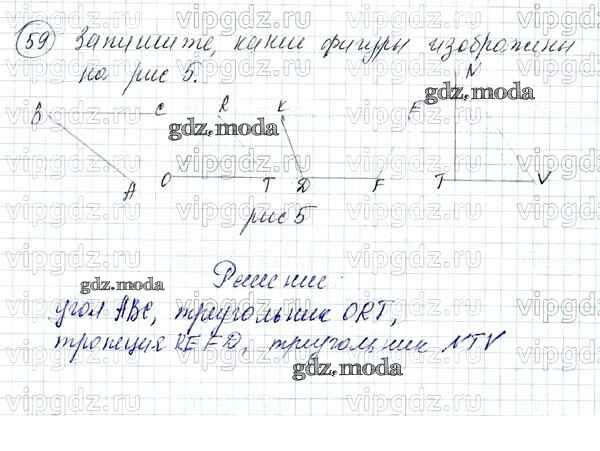 59 Запишите, какие фигуры изображены
на рис 5.
N
B C R K E
A O T D F T V
рис 5
Решение:
угол ABC, треугольник ORT,
трапеция KEFD, треугольник NTV
gdz.moda
gdz.moda
gdz.moda
gdz.moda
vipgdz.ru